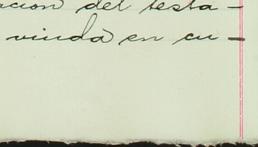 acion del testa-
viuda en cu-